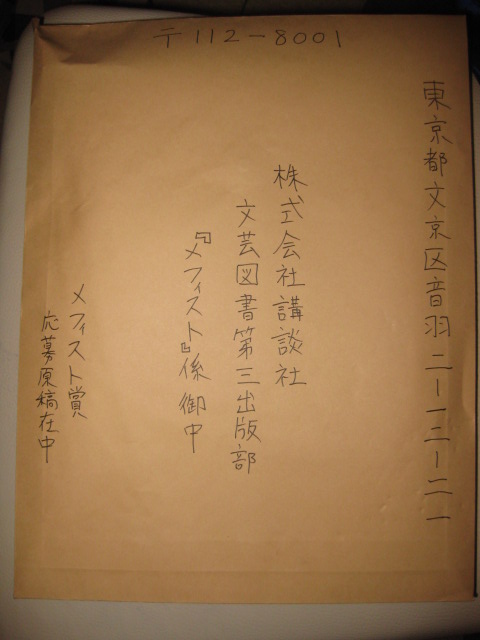 〒112-8001
東京都文京区音羽二ー一二ー二一
株式会社講談社
文芸図書第三出版部
『メフィスト』係 御中
メフィスト賞
応募原稿在中